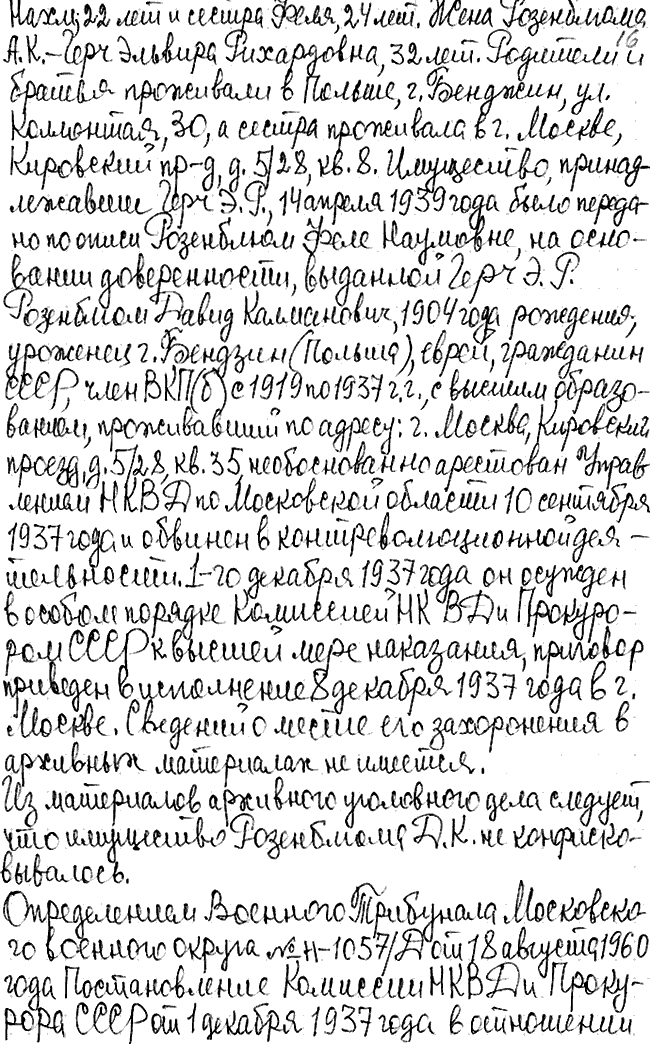 Нахм, 22 лет и сестра Феля, 24 лет. Жена Розенблюма
16
А.К.-Герч Эльвира Рихардовна, 32 лет. Родители и
братья проживали в Польше, г. Бенджин, ул.
Коллонтая, 30, а сестра проживала в г. Москве,
Кировский пр-д, д. 5/28, кв. 8. Имущество, принад-
лежавшие Герч Э.Р., 14 апреля 1939 года было переда-
но по описи Розенблюм Феле Наумовне, на осно-
вании доверенности, выданной Герч Э.Р.
Розенблюм Давид Калманович, 1904 года рождения,
уроженец г. Бендзин (Польша), еврей, гражданин
СССР, член ВКП(б) с 1919 по 1937 г.г., с высшим образо-
ванием, проживавший по адресу: г. Москва, Кировский
проезд, д. 5/28, кв. 35, необоснованно арестован Управ-
лением НКВД по Московской области 10 сентября
1937 года и обвинен в контрреволюционной дея-
тельности. 1-го декабря 1937 года он осужден
в особом порядке Комиссией НКВД и Прокуро-
ром СССР к высшей мере наказания, приговор
приведен в исполнение 8 декабря 1937 года в г.
Москве. Сведений о месте его захоронения в
архивных материалах не имеется.
Из материалов архивного уголовного дела следует,
что имущество Розенблюма Д.К. не конфиско-
вывалось.
Определением Военного Трибунала Московско-
го военного округа № Н-1057/Д от 18 августа 1960
года Постановление Комиссии НКВД и Проку-
рора СССР от 1 декабря 1937 года в отношении